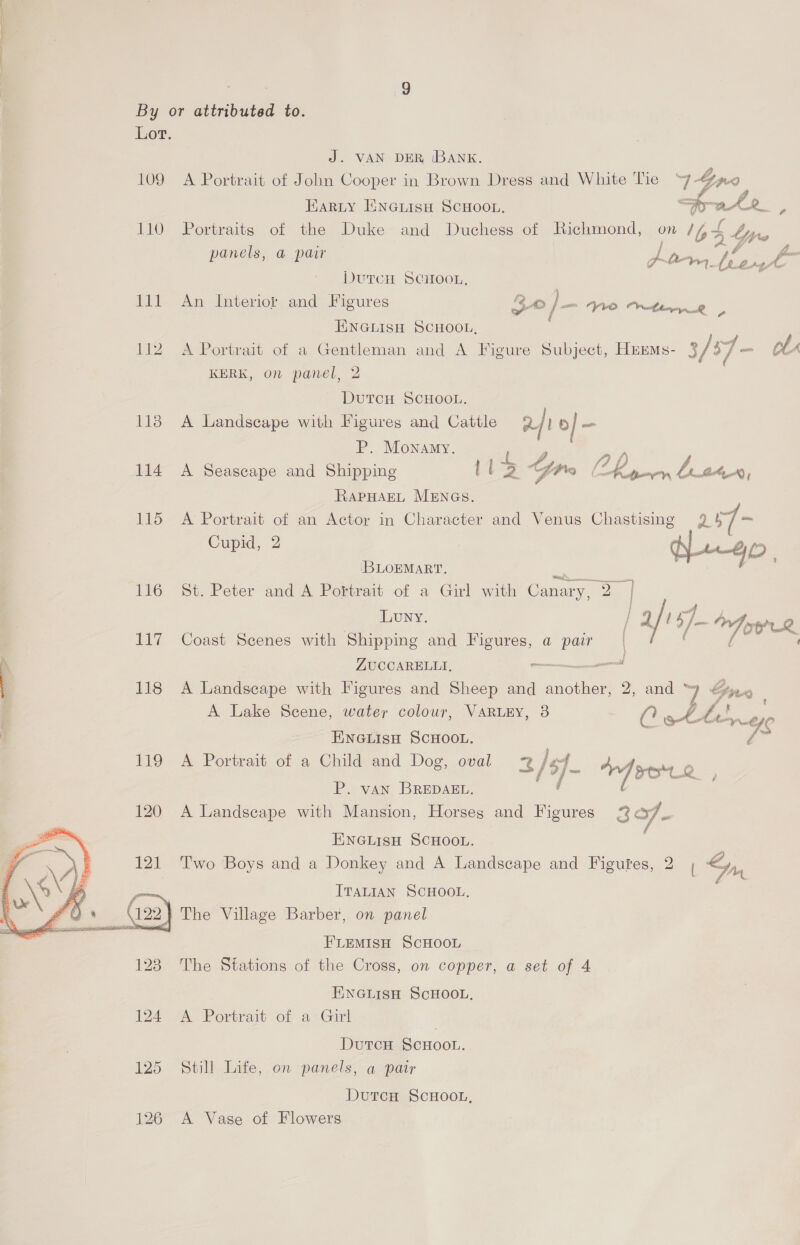 9
By or attributed to.
Lot.
J. VAN DER BANK.
109 A Portrait of John Cooper in Brown Dress and White Tie 7 Gns
EARLY ENGLISH SCHOOL.
110 Portraits of the Duke and Duchess of Richmond, on
panels, a pair
DUTCH SCHOOL.
111 An Interior and Figures 30/-
ENGLISH SCHOOL.
112 A Portrait of a Gentleman and A Figure Subject, HEEMS- 3/5/-
KERK, on panel, 2
DUTCH SCHOOL.
113 A Landscape with Figures and Cattle 2/10/-
P. MONAMY.
114 A Seascape and Shipping Gns
RAPHAEL MENGS.
115 A Portrait of an Actor in Character and Venus Chastising 25/-
Cupid, 2
BLOEMART.
116 St. Peter and A Portrait of a Girl with Canary, 2
LUNY. 2/15/-
117 Coast Scenes with Shipping and Figures, a pair
ZUCCARELLI.
118 A Landscape with Figures and Sheep and another, 2, and 7 Gns
A Lake Scene, water colour, VARLEY, 3
ENGLISH SCHOOL.
119 A Portrait of a Child and Dog, oval 3/5/-
P. VAN BREDAEL.
120 A Landscape with Mansion, Horses and Figures 30/-
ENGLISH SCHOOL.
121 Two Boys and a Donkey and A Landscape and Figures, 2
ITALIAN SCHOOL.
122 The Village Barber, on panel
FLEMISH SCHOOL
123 The Stations of the Cross, on copper, a set of 4
ENGLISH SCHOOL.
124 A Portrait of a Girl
DUTCH SCHOOL.
125 Still Life, on panels, a pair
DUTCH SCHOOL.
126 A Vase of Flowers